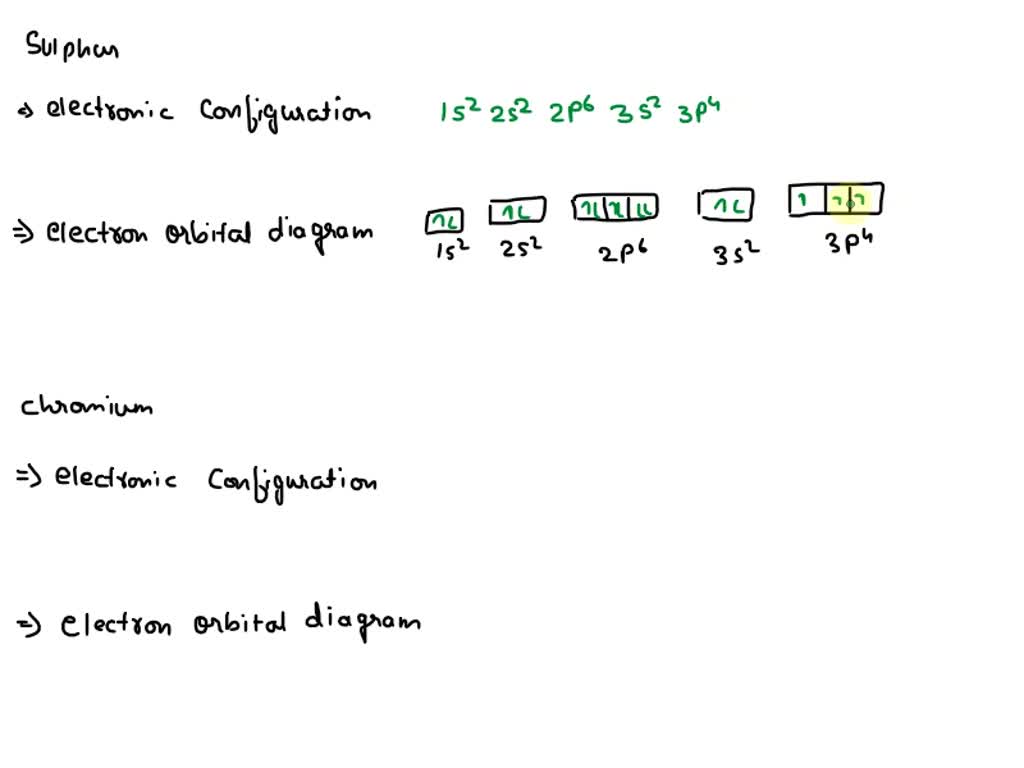 Sulphur
⇒ electronic configuration 1s² 2s² 2p⁶ 3s² 3p⁴
⇒ electron orbital diagram 1L 1L 1L 1L 1L 1L 1 1 1
1s² 2s² 2p⁶ 3s² 3p⁴
chromium
⇒ electronic configuration
⇒ electron orbital diagram